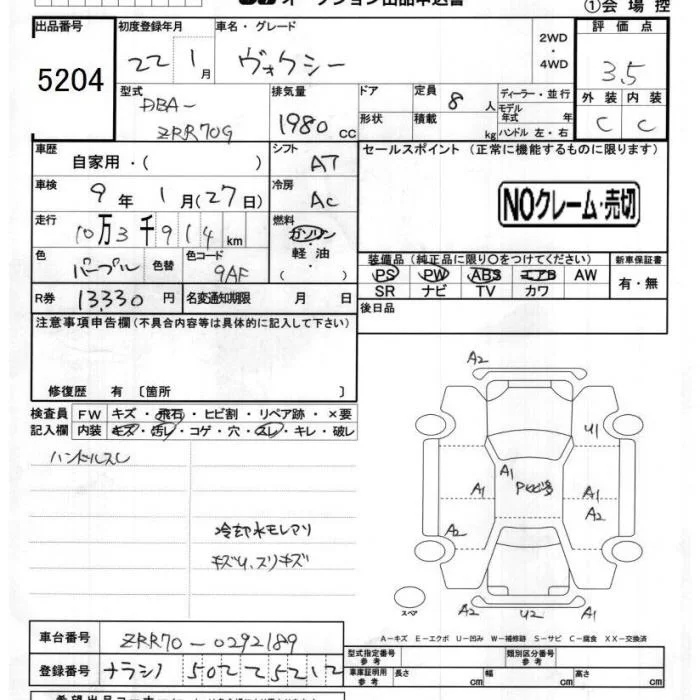 オークション出品申込書
①会場控
出品番号 初度登録年月 車名・グレード 2WD・4WD 評価点
5204 22 1月 ヴォクシー 3.5
型式 排気量 ドア 定員 8人 ディーラー・並行 外装 内装
DBA-ZRR70G 1980cc 形状 積載 kg モデル年式 年 C C
ハンドル 左・右
車歴 シフト セールスポイント (正常に機能するものに限ります)
自家用・( ) AT
車検 9年1月(27日) 冷房 AC NOクレーム・売切
走行 10万3千914km 燃料 ガソリン・軽油・( )
色 パープル 色替 色コード 9AF
装備品(純正品に限り○をつけてください) 新車保証書
PS PW ABS エアB AW 有・無
SR ナビ TV カワ
R券 13,330円 名変通知期限 月 日
後日品
注意事項申告欄(不具合内容等は具体的に記入して下さい)
修復歴 有 〔箇所 〕
検査員 FW キズ・飛石・ヒビ割・リペア跡・×要
記入欄 内装 キズ・汚レ・コゲ・穴・スレ・キレ・破レ
ハンドルスレ
冷却水モレアリ
キズU、スリキズ
A2
U1
A1
A1
A1
A2
A2
A2 U2 A1
スペア
A-キズ E-エクボ U-凹み W-補修跡 S-サビ C-腐食 XX-交換済
車台番号 ZRR70-0292189
型式指定番号 参考 類別区分番号 参考
登録番号 ナラシノ 502 て 5212
車庫証明用 参考 長さ cm 幅 cm 高さ cm
希望出品コーナー